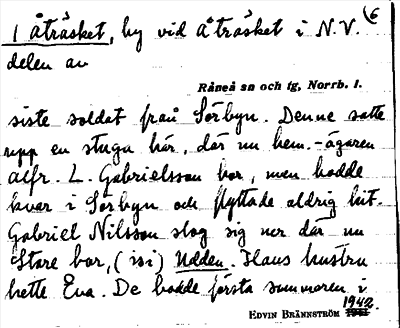 1 Åträsket, by vid Åträsket i N.V. 6
delen av
Råneå sn och tg, Norrb. l.
siste soldat från Sörbyn. Denne satte
upp en stuga här, där nu hem.-ägaren
Alfr. L. Gabrielsson bor, men bodde
kvar i Sörbyn och flyttade aldrig hit.
Gabriel Nilsson slog sig ner där nu
Stare bor, (isi) Udden. Hans hustru
hette Eva. De bodde första sommaren i
EDVIN BRÄNNSTRÖM 1942